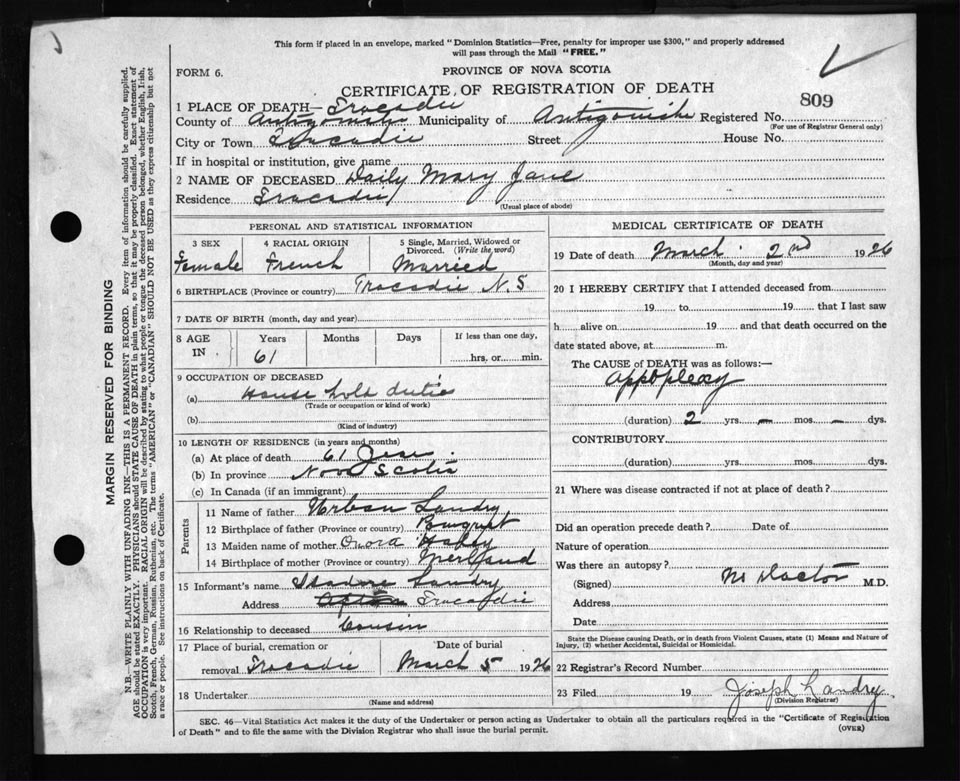 This form if placed in an envelope, marked "Dominion Statistics—Free, penalty for improper use $300," and properly addressed
will pass through the Mail "FREE."
FORM 6.
PROVINCE OF NOVA SCOTIA
CERTIFICATE OF REGISTRATION OF DEATH
809
1 PLACE OF DEATH— Tracadie
County of Antigonish Municipality of Antigonish Registered No.
(For use of Registrar General only)
City or Town Tracadie Street House No.
If in hospital or institution, give name
2 NAME OF DECEASED Daily Mary Jane
Residence Tracadie
(Usual place of abode)
PERSONAL AND STATISTICAL INFORMATION
3 SEX 4 RACIAL ORIGIN 5 Single, Married, Widowed or Divorced. (Write the word)
Female French Married
6 BIRTHPLACE (Province or country) Tracadie N. S
7 DATE OF BIRTH (month, day and year)
8 AGE IN Years Months Days If less than one day,
61 hrs. or min.
9 OCCUPATION OF DECEASED
(a) House hold dutie
(Trade or occupation or kind of work)
(b)
(Kind of industry)
10 LENGTH OF RESIDENCE (in years and months)
(a) At place of death 61
(b) In province Nova Scotia
(c) In Canada (if an immigrant)
Parents
11 Name of father Urban Landry
12 Birthplace of father (Province or country) Pomquet
13 Maiden name of mother
14 Birthplace of mother (Province or country)
15 Informant's name Isadore Landry
Address Tracadie
16 Relationship to deceased Cousin
17 Place of burial, cremation or Date of burial
removal Tracadie March 5 1926
18 Undertaker
(Name and address)
MEDICAL CERTIFICATE OF DEATH
19 Date of death March 2nd 1926
(Month, day and year)
20 I HEREBY CERTIFY that I attended deceased from
19 to 19 that I last saw
h alive on 19 and that death occurred on the
date stated above, at m.
The CAUSE of DEATH was as follows:—
Appoplexy
(duration) 2 yrs. – mos. – dys.
CONTRIBUTORY
(duration) yrs. mos. dys.
21 Where was disease contracted if not at place of death?
Did an operation precede death? Date of
Nature of operation
Was there an autopsy?
(Signed) No Doctor M.D.
Address
Date
State the Disease causing Death, or in death from Violent Causes, state (1) Means and Nature of
Injury, (2) whether Accidental, Suicidal or Homicidal.
22 Registrar's Record Number
23 Filed 19 Joseph Landry
(Division Registrar)
SEC. 46—Vital Statistics Act makes it the duty of the Undertaker or person acting as Undertaker to obtain all the particulars required in the "Certificate of Registration
of Death" and to file the same with the Division Registrar who shall issue the burial permit.
(OVER)
MARGIN RESERVED FOR BINDING
N.B.—WRITE PLAINLY WITH UNFADING INK—THIS IS A PERMANENT RECORD. Every item of information should be carefully supplied.
AGE should be stated EXACTLY. PHYSICIANS should STATE CAUSE OF DEATH in plain terms, so that it may be properly classified. Exact statement of
OCCUPATION is very important. RACIAL ORIGIN will be described by stating to what people or tongue the deceased person belonged, whether English, Irish,
Scotch, French, German, Russian, Ruthenian, etc. The terms "AMERICAN" or "CANADIAN" SHOULD NOT BE USED as they express citizenship but not
a race or people. See instructions on back of Certificate.